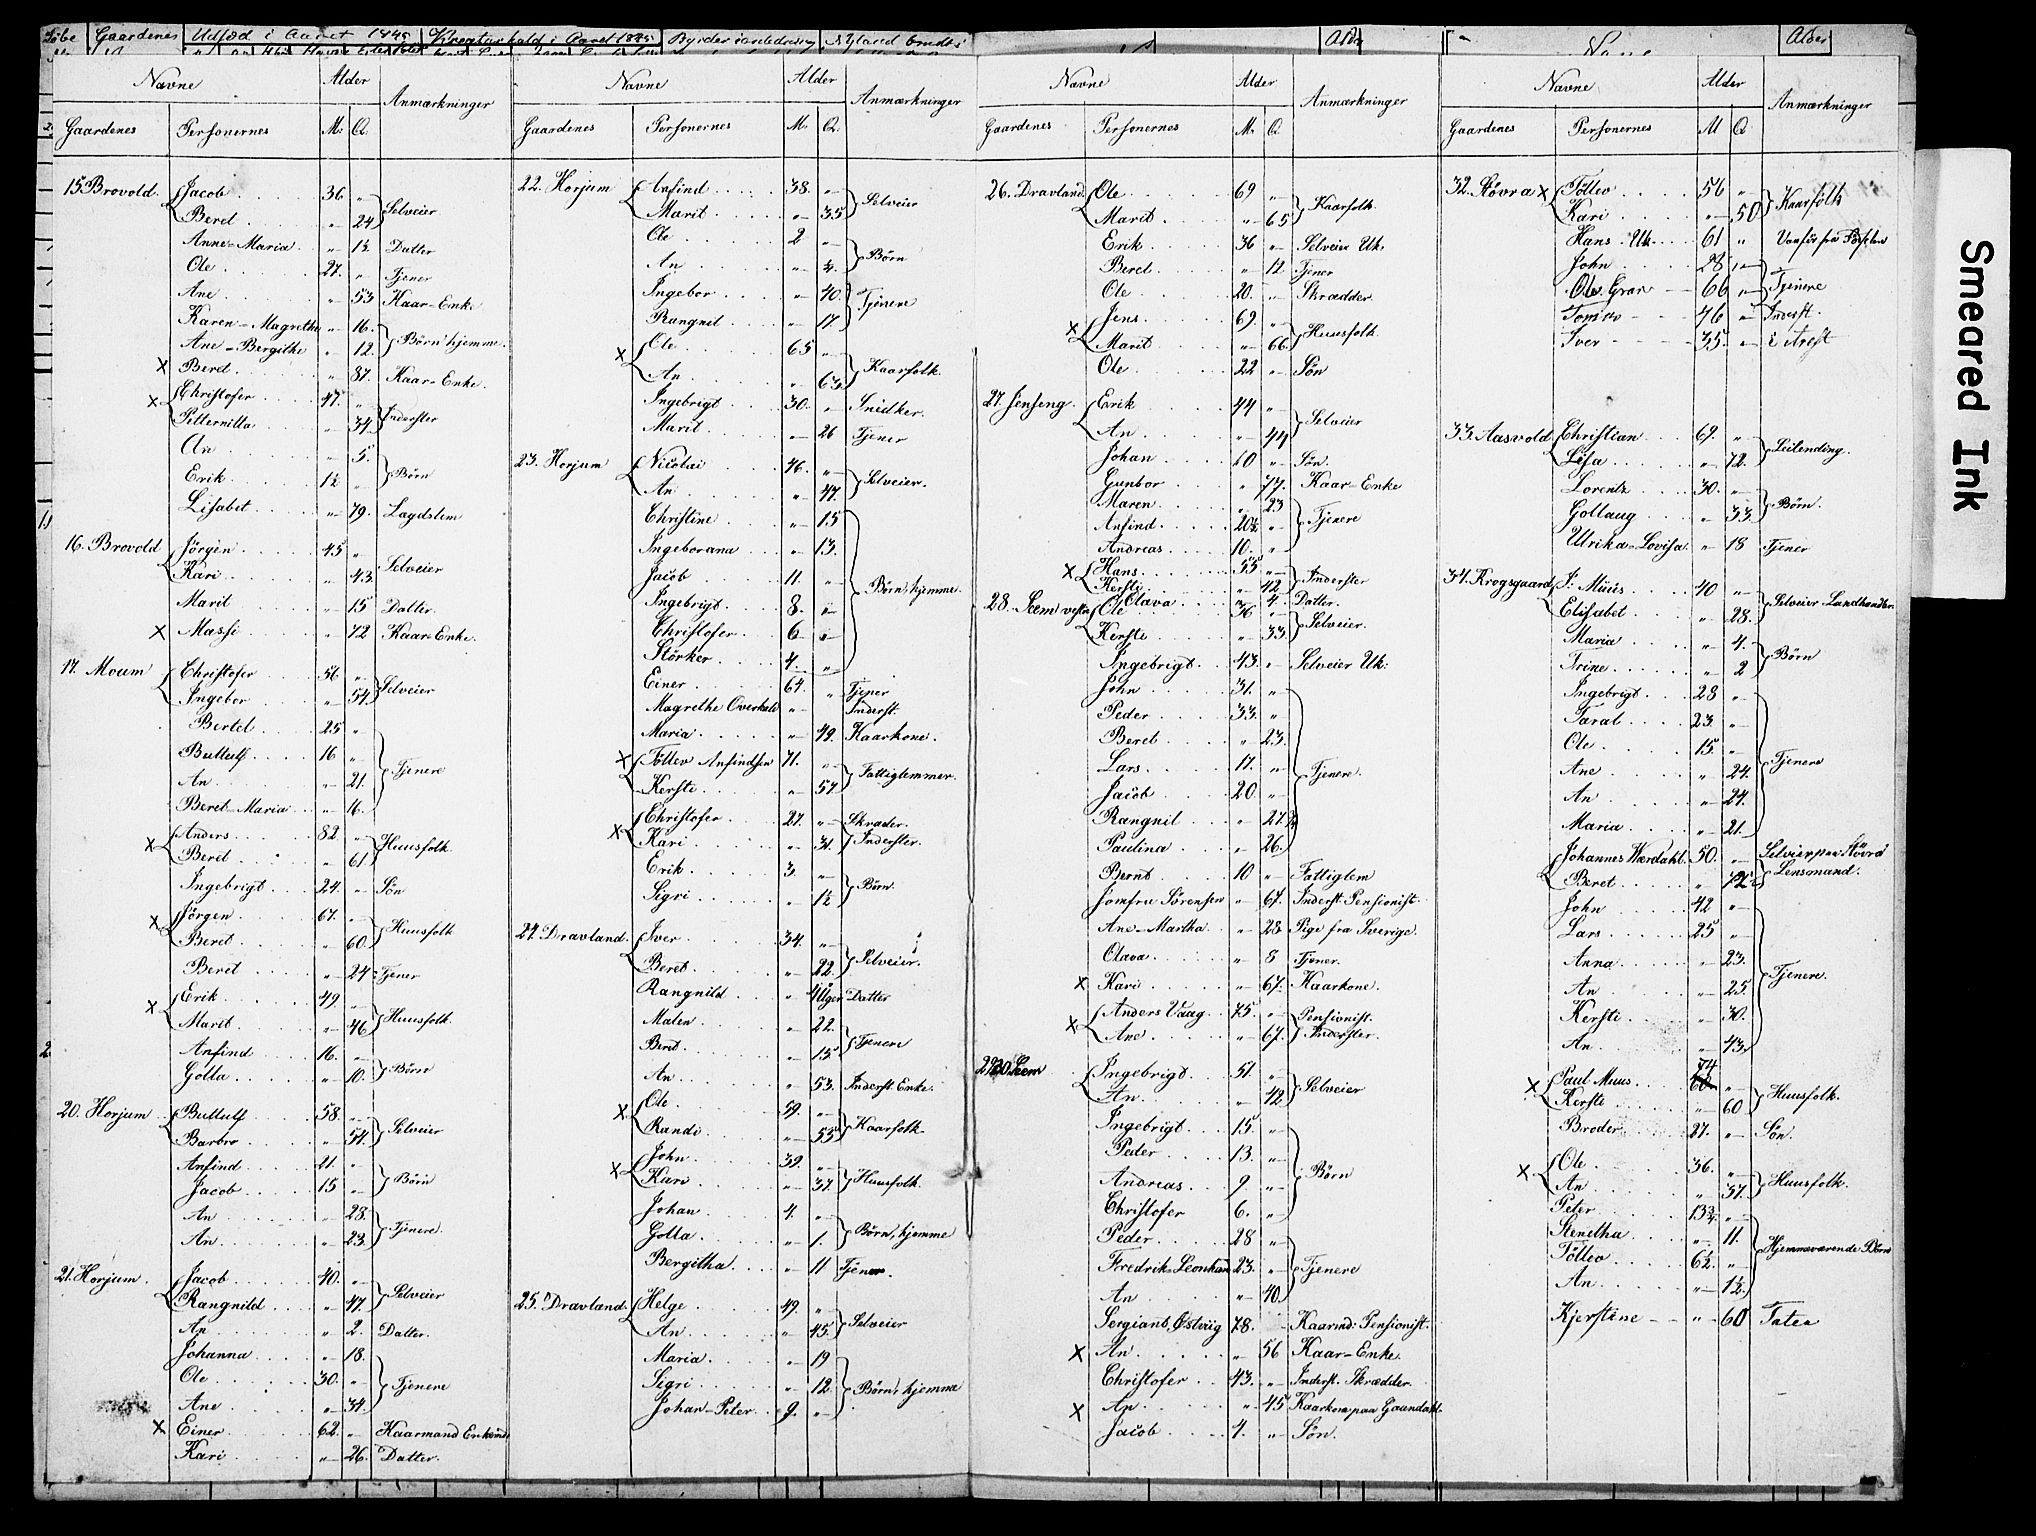 Gaardenes Udsæd i Aaret 1845 Kreaturhold i Aaret 1845
Navne Alder Anmærkninger
Gaardenes Personernes M: Q.
15. Brovold. Jacob 36 „
Beret „ 24 Selveier
Anne-Maria „ 1½ Datter
Ole 27. „ Tjener
Ane „ 53 Kaar-Enke
Karen-Magrethe „ 16.
Ane-Bergithe „ 12. Børn hjemme.
x Beret „ 87. Kaar-Enke.
x Christofer 47. „
Petternilla „ 34. Inderster
An „ 5.
Erik 1½ „ Børn
Lisabet „ 79. Lagdslem
16. Brovold Jörgen 45 „
Kari „ 43. Selveier
Marit „ 15 Datter.
x Massi „ 72 Kaar-Enke.
17. Moum Christofer 56 „
Ingebor „ 54. Selveier
Bertel 25 „
Buttulf 16 „
An „ 21. Tjenere
Beret-Maria „ 16.
x Anders 82 „
Beret „ 61 Huusfolk.
Ingebrigt 24. „ Sön
x Jörgen 67. „
Beret „ 60. Huusfolk
Beret „ 24 Tjener
x Erik 49 „
Marit „ 46 Huusfolk.
Anfind 16. „
Golla „ 10. Børn
20. Horjum Buttulf 58. „
Barbro „ 54. Selveier
Anfind 21. „
Jacob 15 „ Børn
An „ 28.
An „ 23. Tjenere
21. Horjum. Jacob 40. „
Rangnild „ 47. Selveier
An „ 2. Datter.
Johanna „ 18.
Ole 30. „ Tjenere
Ane „ 34.
x Einer 62. „ Kaarmand Enkemd:
Kari „ 26. Datter.
Navne Alder Anmærkninger
Gaardenes Personernes M. Q.
22. Horjum Anfind 38. „
Marit „ 35 Selveier
Ole 2 „
An „ 4. Børn
Ingebor „ 40.
Rangnil „ 17 Tjenere
x Ole 65 „
An „ 63. Kaarfolk.
Ingebrigt 30. „ Snidker.
Marit „ 26 Tjener
23. Horjum Nicolai 46. „
An „ 47. Selveier.
Christine „ 15
Ingeborana „ 13.
Jacob 11. „
Ingebrigt 8. „ Børn, hjemme.
Christofer 6 „
Störker 4. „
Einer 64. „ Tjener
Magrethe Overhald „ Inderst.
Maria „ 49. Kaarkone.
x Töllev Anfindsen 71. „
Kersti „ 57 Fattiglemmer.
x Christofer 27. „ Skræder.
Kari „ 31. Inderster.
Erik 3. „
Sigri „ 1½ Børn.
24. Dravland. Iver 34. „
Beret „ 22. Selveier.
Rangnild „ 4 Uger Datter
Malen „ 22.
Beret „ 15 Tjenere
An „ 53. Inderst Enke.
x Ole 59. „
Randi „ 55 Kaarfolk
x John 39. „
Kari „ 37. Huusfolk.
Johan 4. „
Golla „ 1. Børn, hjemme
Bergitha „ 11 Tjener.
25. Dravland. Helge 49. „
An „ 45. Selveier
Maria „ 19
Sigri „ 12. Børn hjemme
Johan-Peter 9. „
Navne Alder Anmærkninger
Gaardenes Personernes M. Q
26. Dravland. Ole 69 „
Marit „ 65 Kaarfolk.
Erik 36 „ Selveier Uk:
Beret „ 12 Tjener
Ole 20. „ Skrædder.
x Jens 69. „
Marit „ 66. Huusfolk.
Ole 22 „ Sön
27. Jenseng. Erik 44 „
An „ 44 Selveier
Johan 10 „ Sön.
Gunbor „ 77. Kaar-Enke
Maren „ 23
Anfind 20½ „ Tjenere
Andreas 10. „
x Hans 55 „
Kersti „ 42 Inderster
Olava „ 4. Datter.
28. Seem vestre Ole 36 „
Kersti „ 33. Selveier.
Ingebrigt 43. „ Selveier Uk:
John 31. „
Peder 33. „
Beret „ 23.
Lars 17. „ Tjenere.
Jacob 20. „
Rangnil „ 27¾
Paulina „ 26.
Bernt 10 „ Fattiglem
Jomfru Sörensen „ 67. Inderst. Pensionist.
Ane-Martha „ 28. Pige fra Sverige.
Olava „ 8 Tjener.
x Kari „ 67. Kaarkone.
x Anders Vaag 75. „ Pensionist.
Ane „ 67. Inderster.
30. Seem Ingebrigt 51 „
An „ 42 Selveier
Ingebrigt 15. „
Peder 13. „
Andreas 9 „ Børn
Christofer 6. „
Peder 28 „
Fredrik Leonhard 23. „ Tjenere
An „ 40.
Sergiant Østviig 78. Kaarmd: Pensionist.
x An „ 56 Kaar-Enke.
Christofer 43. „ Inderst. Skrædder.
x An „ 45 Kaarkone paa Gaundahl.
Jacob 4. „ Sön.
Navne Alder Anmærkninger
Gaardenes Personernes M Q
32. Stövra x Töllev 56 „
Kari „ 50 Kaarfolk
Hans Uk. 61 „
John 28 „
Ole Gran 66 „ Tjenere
46 „ Inderst.
Iver 35. „ i Arest
33. Aasvold Christian 69. „
Lisa „ 72. Leilending.
Lorentz 30. „
Gollaug „ 33. Børn.
Ulrika-Lovisa. „ 18 Tjener
34. Krogsgaard J: Müüs 40 „
Elisabet „ 28. Selveier Landhandler.
Maria „ 4.
Trine „ 2 Børn
Ingebrigt 28 „
Taral 23. „
Ole 15. „
Ane „ 24. Tjenere
An „ 24.
Maria „ 21.
Johannes Wærdahl. 50. „ Selveier paa Stövra
Beret „ 42 Lensmand.
John 42 „
Lars 25 „
Anna „ 23.
An „ 25. Tjenere.
Kersti „ 30.
An „ 43.
74
x Paul Muus „
Kersti „ 60 Huusfolk.
Broder 27. „ Sön.
x Ole 36. „
An „ 37. Huusfolk.
Peter 13¾ „
Stenetha „ 11. Hjemmeværende Börn
Töllev 6½ „
An „ 1½
Kjerstine „ 60 Tater
Smeared Ink